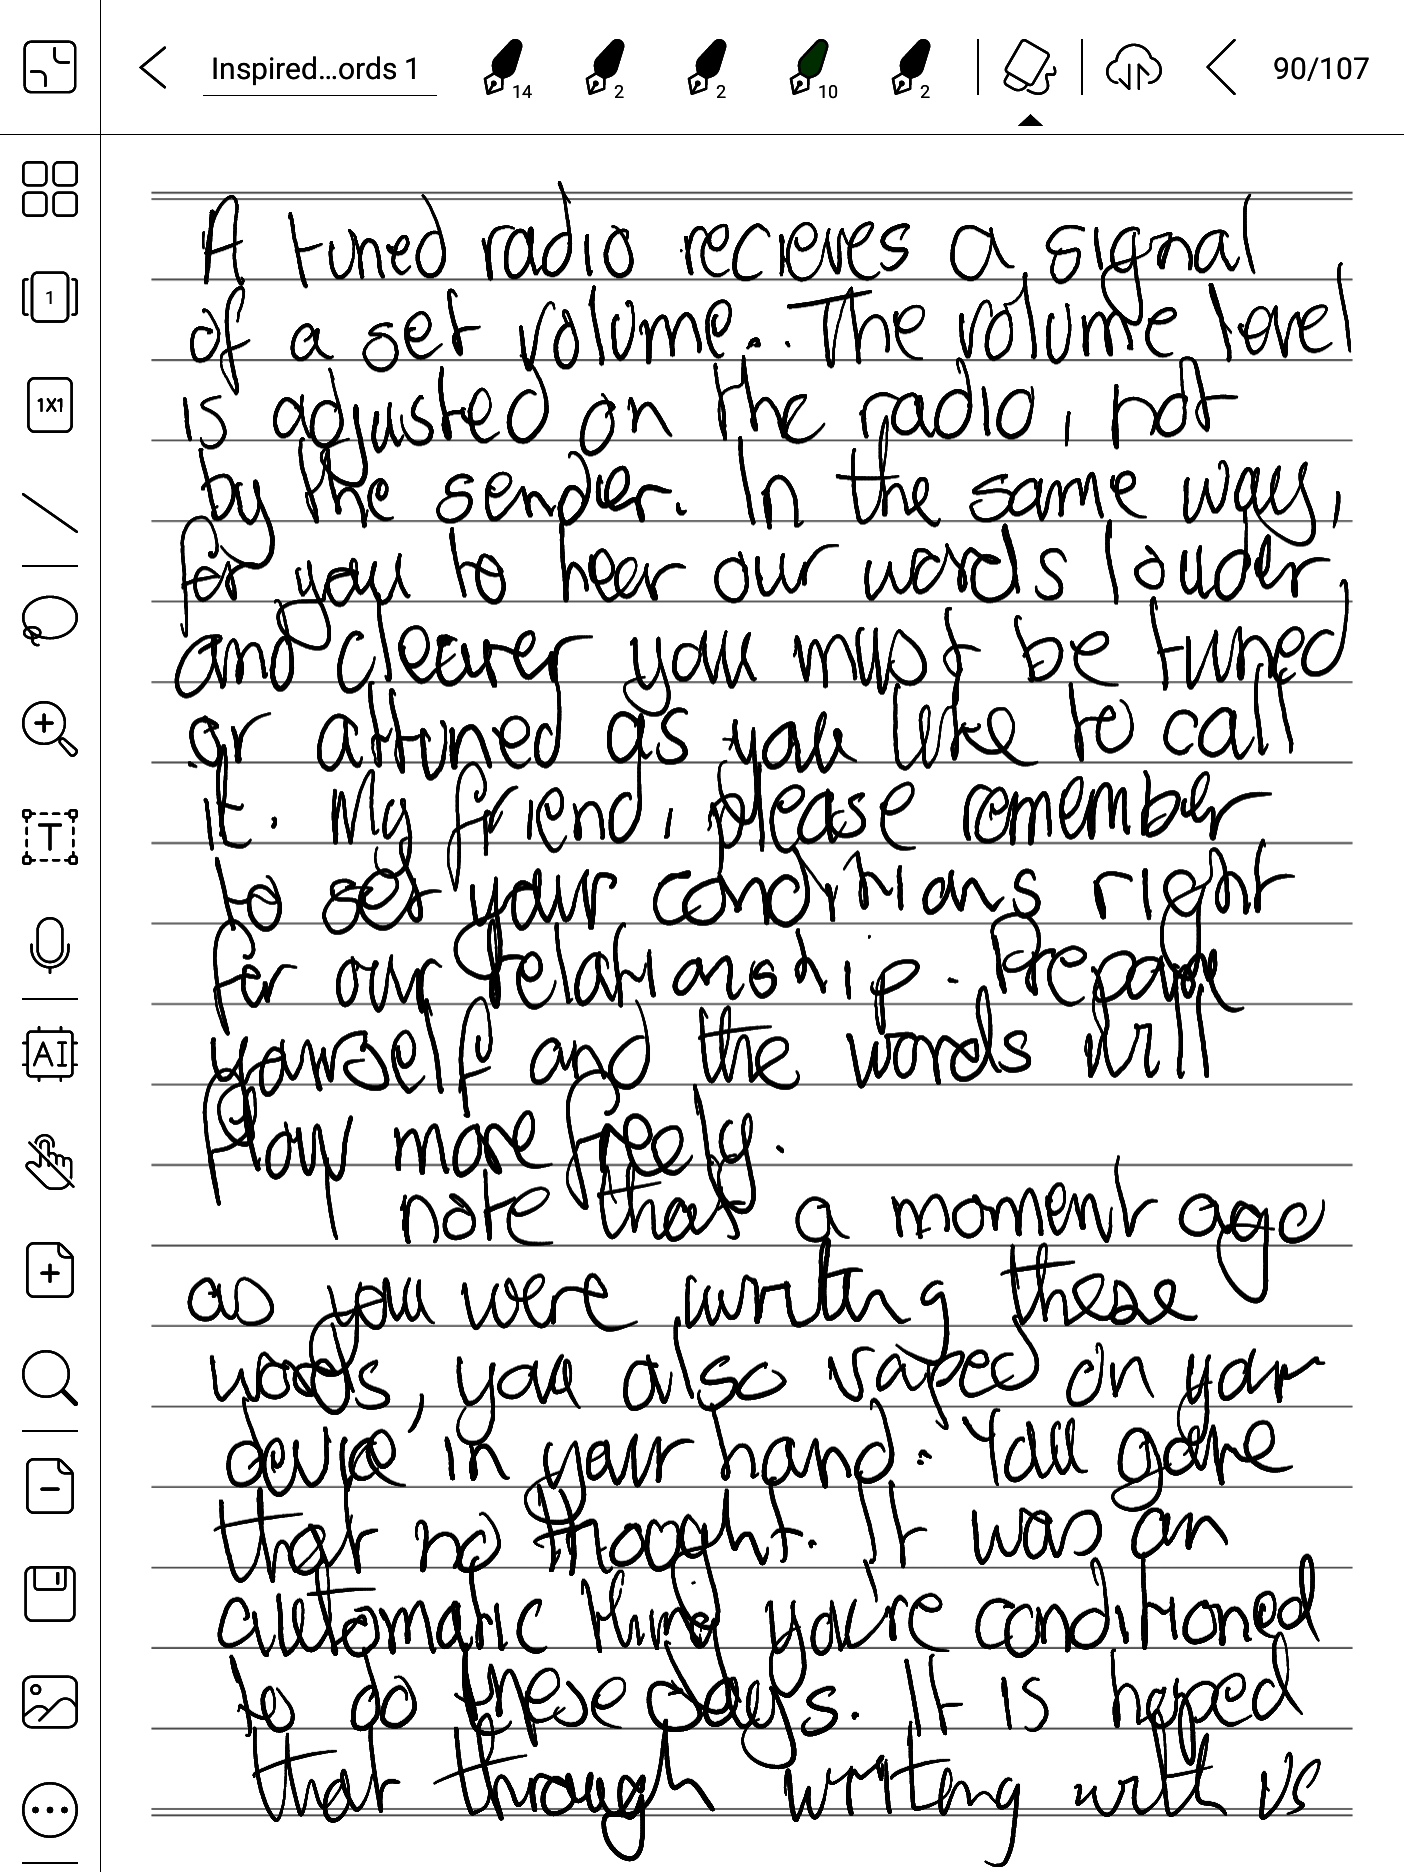 Inspired...ords 1
14
2
2
10
2
90/107
1
1X1
T
AI
A tuned radio recieves a signal
of a set volume.. The volume level
is adjusted on the radio, not
by the sender. In the same way,
for you to hear our words louder,
and clearer you must be tuned
or attuned as you like to call
it. My friend, please remember
to set your conditions right
for our relationship. Prepare
yourself and the words will
flow more freely.
note that a moment ago
as you were writing these
words, you also vaped on your
device in your hand. You gave
that no thought. It was an
automatic thing you're conditioned
to do these days. It is hoped
that through writing with us